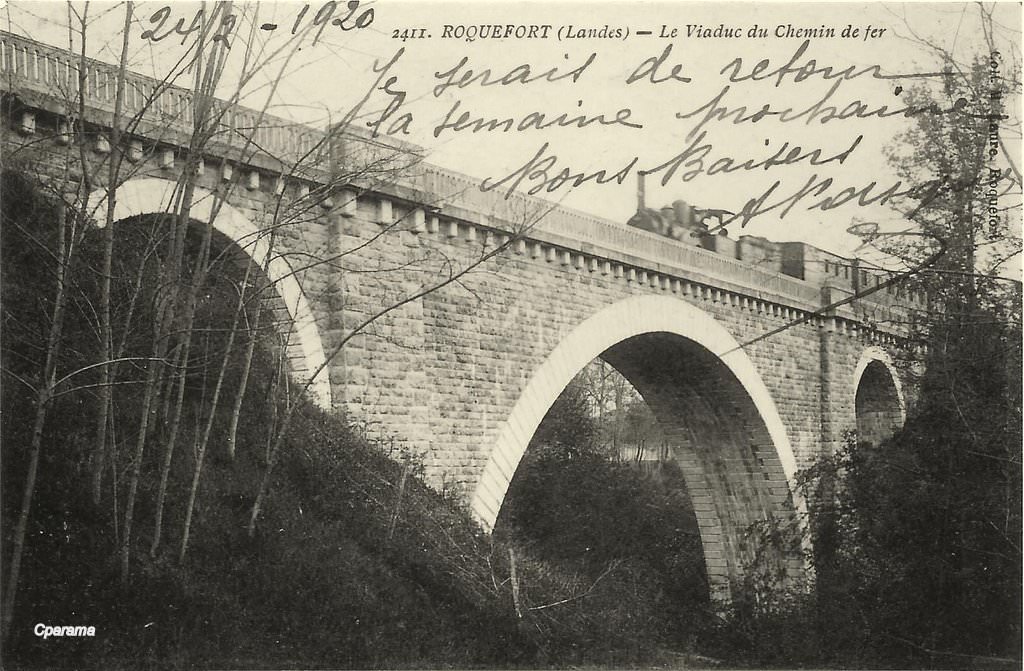 24/2 - 1920
2411. ROQUEFORT (Landes) — Le Viaduc du Chemin de fer
Je serais de retour
la semaine prochaine
Bons Baisers
Roquefort
Cparama